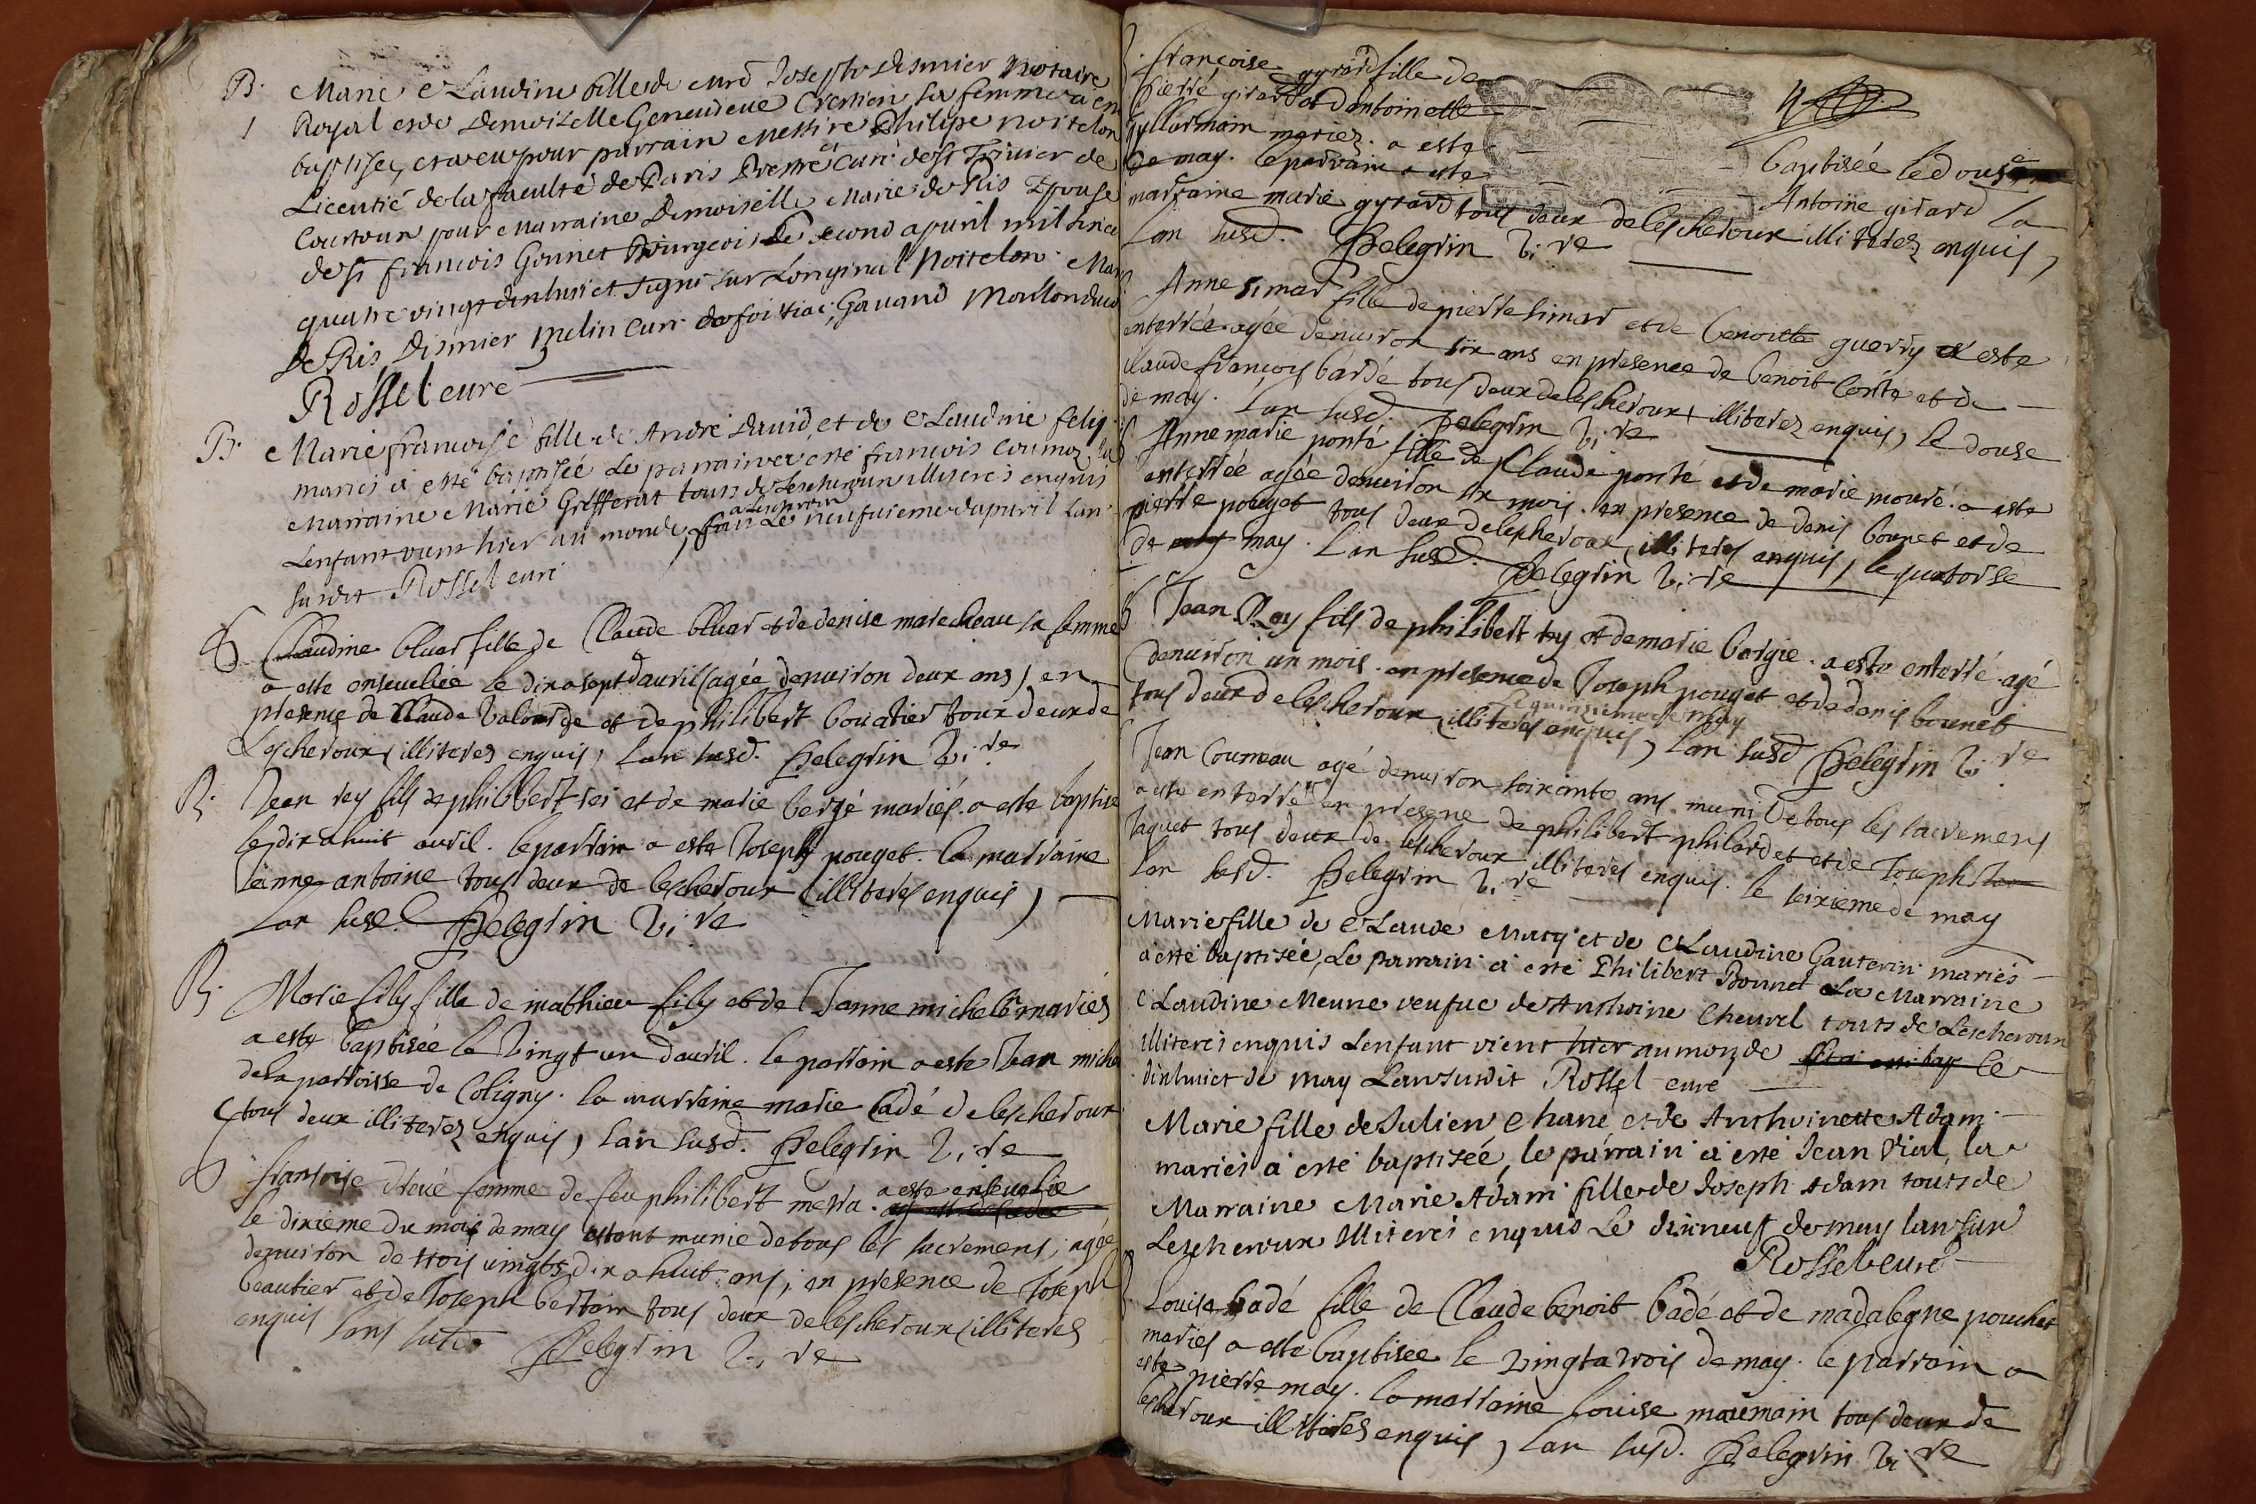 B. Marie Claudine fille de mre Joseph Disnier Notaire
1 Royal et de Demoiselle Genevieve Crestien sa femme a été
baptisée, et a eu pour parrain Messire Philipe Noitelon
Licentié de la faculté de Paris Prestre et Curé de St Trivier de
Courtoux pour Marraine Demoiselle Marie de Ris Epouse
de Sr françois Gonnet Bourgeois Le second apuril mil six cent
quatre vingt dix huict Signé sur Loriginal Noitelon Marie
De Ris, Disnier, Mulin Curé de foissiat, Gavand
Rossel curé
B. Marie françoise fille de André David, et de Claudine felix
mariés a esté baptisée Le parrain a esté françois Cournoz, la
Marraine Marie Grifferat touts de Lescheroux illiterés enquis
a Lescheroux
Lenfant vient hier au monde, fait Le neufuieme dapuril Lan
susdit Rossel curé
S Claudine bluar fille de Claude bluar et de denise marechau sa femme
a este enseuelie le dix a sept dauril (agée denuiron deux ans) en
presence de Claude Valorge et de philibert bouatier tous deux de
Lescheroux (illiteres enquis) Lan susd. Pelegrin Vi.re
B. Jean rey fils de philibert rei et de marie bergé mariés. a este baptise
le dix a huit auril. le parrain a este Joseph pouget. la marraine
Jeanne antoine tous deux de lescheroux (illiteres enquis)
Lan susd. Pelegrin Vi.re
B. Marie fily fille de mathieu fily et de Janne michelet mariés
a este baptisée le vingt un dauril. le parrain a este Jean miche
de la parroisse de Coligny. la marraine marie Cadé de lescheroux
(tous deux illiterez enquis) Lan susd. Pelegrin Vi.re
S fransoise femme de feu philibert merra. a este enseuelie
le dixieme du mois de may estant munie de tous les sacremens, agée
denuiron de trois vingts dix a huit ans, en presence de Joseph
beautier et de Joseph bertoin tous deux de lescheroux (illiteres
enquis Lans susd. Pelegrin Vi.re
françoise gyrard fille de
pierre girard et dantoinette
Gyllarmain mariez. a este baptisée le douse
de may. le parrain a este Antoine girard la
marraine marie gyrard tous deux de lescheroux illiterez enquis,
Lan susd. Pelegrin Vi.re
Anne simar fille de pierre simar et de benoitte guerry a este
enterrée agée denuiron six ans en presence de benoit Conte et de
Claude françois bardé tous deux de lescheroux (illiterez enquis) le douse
de may. Lan susd. Pelegrin Vi.re
S Anne marie ponté fille de Claude ponté et de marie mouré. a este
enterrée agée denuiron six mois. en presence de denis bonnet et de
pierre pouget tous deux de lescheroux (illiteres enquis) le quatorse
de may. Lan susd. Pelegrin Vi.re
S Jean Rey fils de philibert rey et de marie bergie. a este enterré. agé
denuiron un mois. en presence de Joseph pouget et de denis bounet
le quinzieme de may
tous deux de lescheroux (illiteres enquis) Lan susd Pelegrin Vi.re
Jean Courneau agé denuiron soixante ans muni de tous les sacremens
a este enterré en presence de philibert philardet et de Joseph
Jaquet tous deux de lescheroux illiteres enquis. le seixieme de may
Lan susd. Pelegrin Vi.re
Marie fille de Claude Mary et de Claudine Gauterin mariés
a esté baptisée, Le parrain a esté Philibert Bonnet La Marraine
Claudine Meune veufue de Anthoine Cheurel touts de Lescheroux
illiterés enquis Lenfant vient hier au monde Le
dixhuict de may Lan susdit Rossel curé
Marie fille de Julien Chane et de Anthoinette Adam
mariés a esté baptisée, le parrain a esté Jean Vial, la
Marraine Marie Adam fille de Joseph Adam touts de
Lescheroux illiterés enquis Le dixneuf de may lan sud
Rossel curé
Louise badé fille de Claude benoit badé et de madalegne pouchet
mariés a este baptisée le vingt a trois de may. le parrain a
este pierre may. la marraine Louise moumain tous deux de
lescheroux illiteres enquis) Lan susd. Pelegrin Vi.re